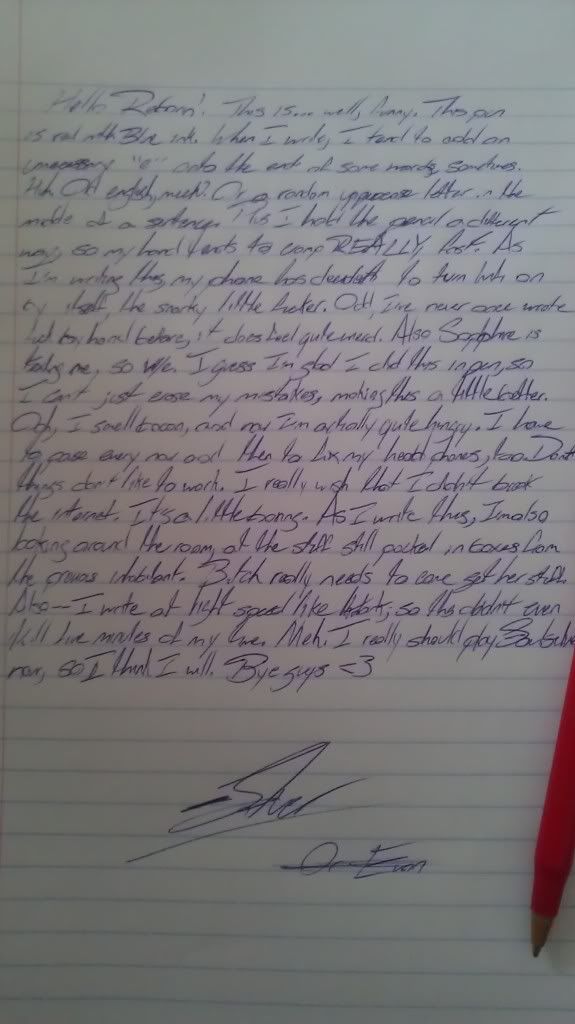 Hello This is... well, funny. This pen
is red with Blue ink. When I write, I tend to add an
unecessary "e" onto the end of some words, sometimes.
Heh. Old english, much? Or a random uppercase letter in the
middle of a sentence. I hold the pencil a different
way, so my hand tends to cramp REALLY, fast. As
I'm writing this, my phone has decided to turn on
by itself, the snarky little fucker. Odd, I've never once wrote
by hand before, it does feel quite weird. Also Sapphire is
me, so I guess I'm glad I did this in pen, so
I can't just erase my mistakes, making this a little better.
Ooh, I smell bacon, and now I'm actually quite hungry. I have
to pause every now and then to fix my head phones, too. Damn
things don't like to work. I really wish that I didn't break
the internet. It's a little boring. As I write this, I'm also
looking around the room, at the stuff still packed in boxes from
the previous inhabitant. Bitch really needs to come get her stuff.
Also— I write at light speed like so this didn't even
kill five minutes of my time. Meh. I really should play
now, so I think I will. Bye guys <3
Silver
Or Evan